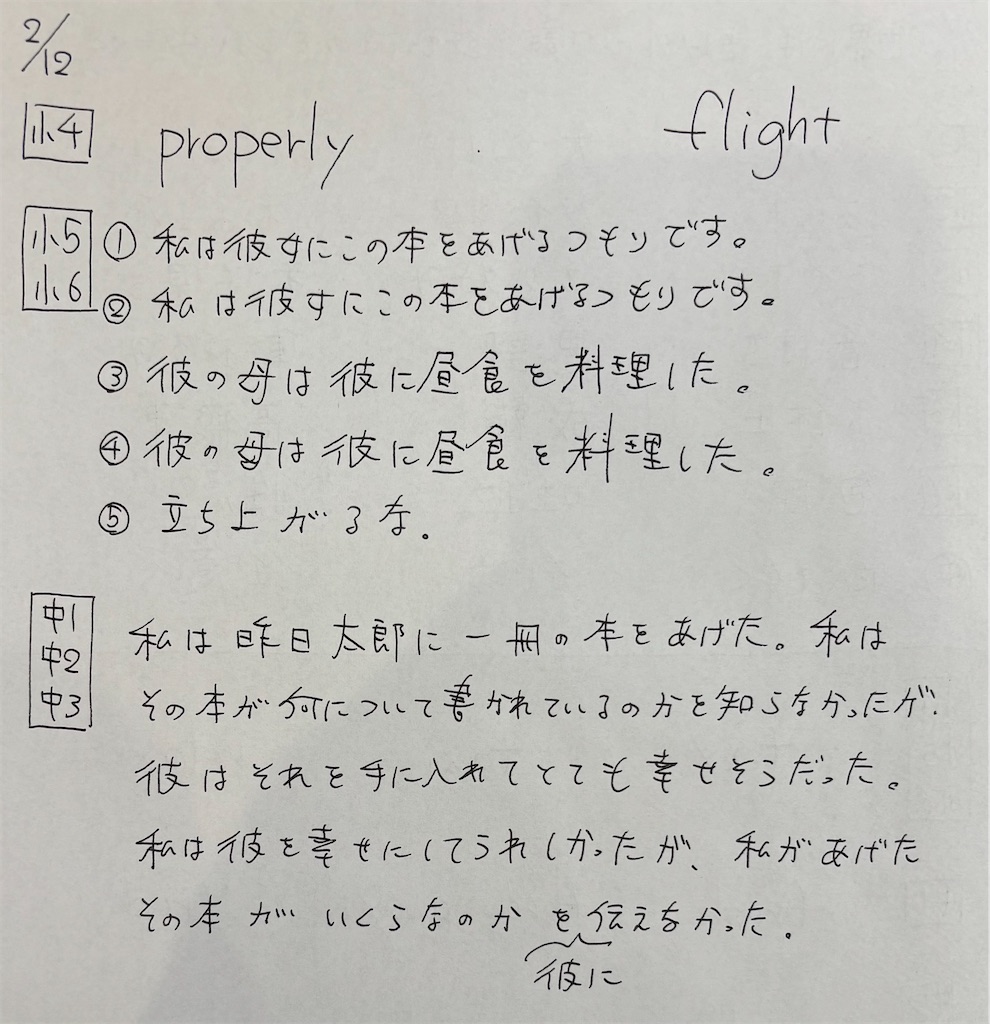 2/12
小4 properly flight
小5 ① 私は彼女にこの本をあげるつもりです。
小6 ② 私は彼女にこの本をあげるつもりです。
③ 彼の母は彼に昼食を料理した。
④ 彼の母は彼に昼食を料理した。
⑤ 立ち上がるな。
中1 私は昨日太郎に一冊の本をあげた。私は
中2 その本が何について書かれているのかを知らなかったが、
中3
彼はそれを手に入れてとても幸せそうだった。
私は彼を幸せにしてうれしかったが、私があげた
その本がいくらなのかを伝えなかった。
彼に